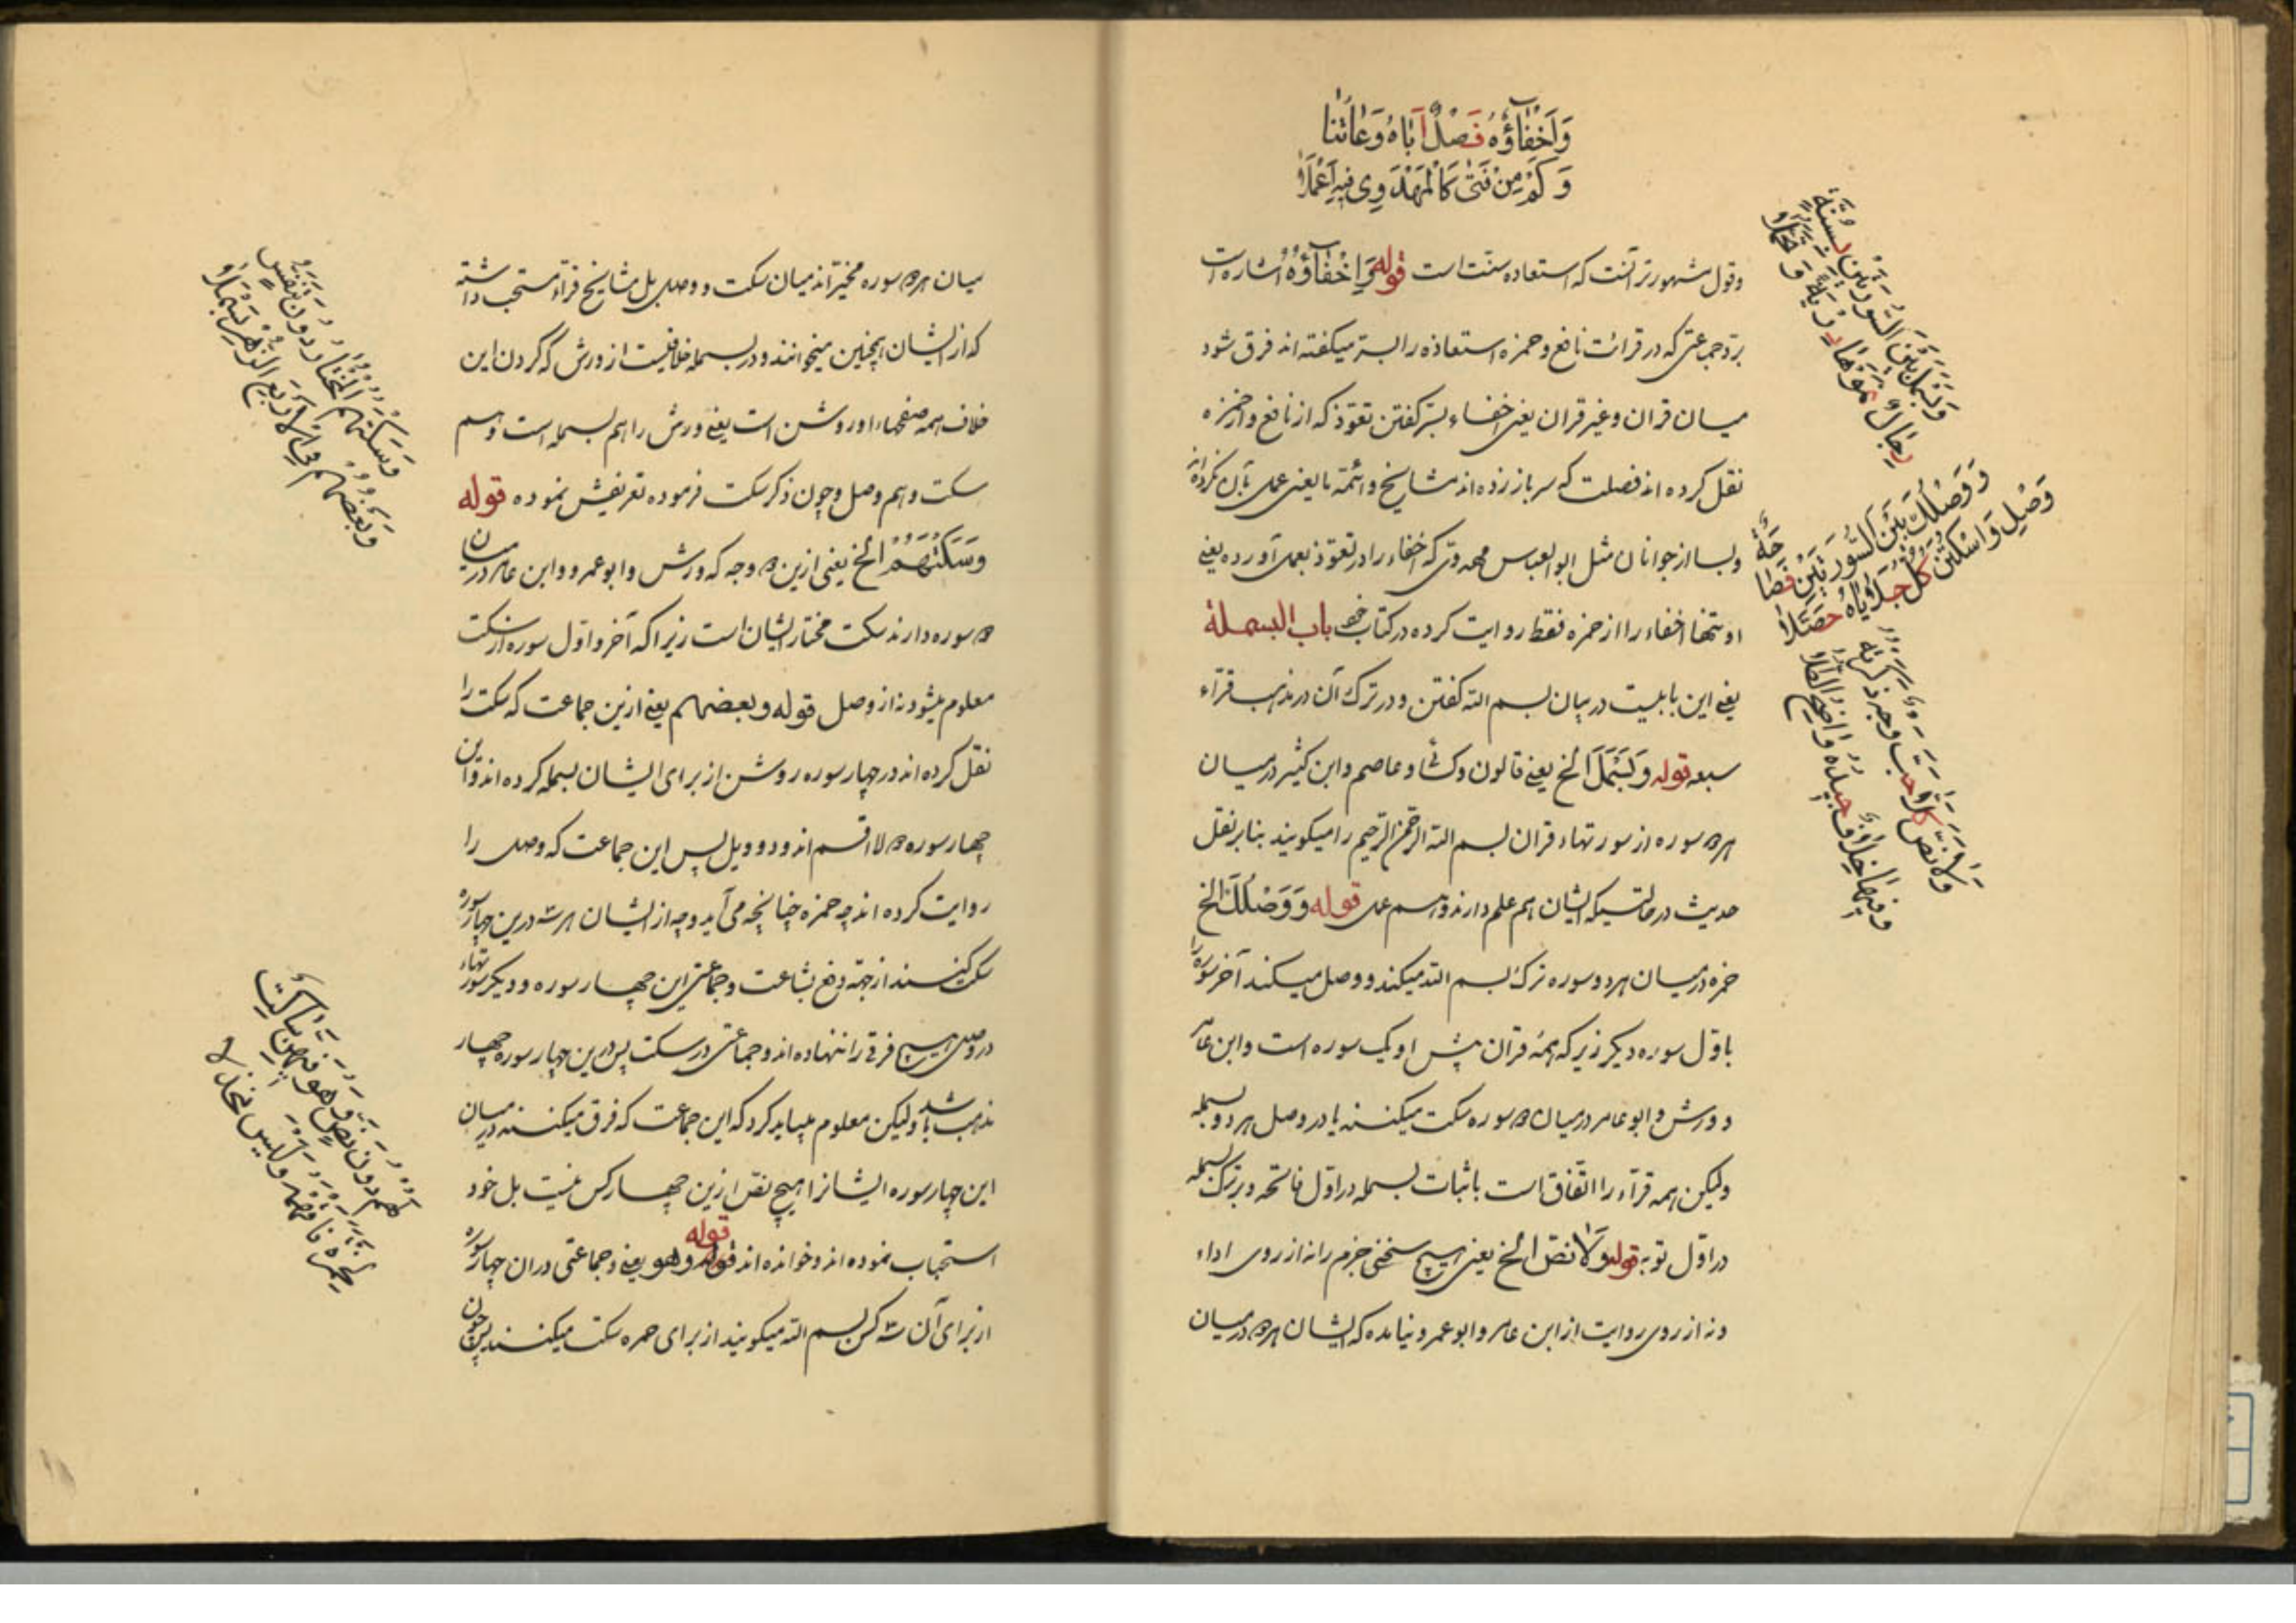 وَإِخْفَاؤُهُ فَصْلٌ أَبَاهُ وُعَاتُنَا
وَكَمْ مِنْ فَتًى كَالْمَهْدَوِي فِيهِ أَعْمَلَا
وقول مشهورتر آنست که استعاذه سنّت است قوله وَاِخْفَاؤُهُ اشارهٔ است
بردّ جماعتی که در قرائت نافع و حمزه استعاذه را بستر میگفته اند فرق شود
میان قران و غیر قران یعنی اخفاء بستر گفتن تعوّذ که از نافع و از حمزه
نقل کرده اند فصلست که سر باز زده اند مشایخ و ائمّه ما یعنی عمل بآن نکرده‌اند
و بسا از جوانان مثل ابوالعباس مهدوی که اخفاء را در تعوّذ بعمل آورده یعنی
او تنها اخفاء را از حمزه فقط روایت کرده در کتاب خود باب البسملة
یعنی این بابیست در بیان بسم الله گفتن و در ترک آن در مذهب قرّاء
سبعه قوله وَبَسْمَلَ الخ یعنی قالون و کسائی و عاصم و ابن کثیر در میان
هر دو سوره از سورتهاء قران بسم الله الرحمن الرحیم را میگویند بنابر نقل
حدیث در حالتیکه ایشان هم علم دارند و هم عمل قوله وَوَصْلُكَ الخ
حمزه در میان هر دو سوره ترک بسم الله میکند و وصل میکند آخر سوره را
باوّل سورهٔ دیگر زیرا که همه قرآن پیش او یک سوره است و ابن عامر
و ورش و ابو عامر در میان دو سوره سکت میکنند یا در وصل هر دو بسمله
ولیکن همه قرّاء را اتّفاق است باثبات بسمله در اوّل فاتحه و بر ترک بسمله
در اوّل توبه قوله وَلَا نَصَّ الخ یعنی هیچ سخنی جزم را نه از روی اداء
و نه از روی روایت از ابن عامر و ابو عمرو نیامده که ایشان هر دو در میان
وَبَسْمَلَ بَيْنَ السُّورَتَيْنِ بِسُنَّةٍ
رِجَالٌ نَمَوْهَا دِرْيَةً وَتَحَمُّلَا
وَوَصْلُكَ بَيْنَ السُّورَتَيْنِ فَصَاحَةٌ
وَصِلْ وَاسْكُتَنْ كُلٌّ جَلَايَاهُ حَصَّلَا
وَلَا نَصَّ كَلَّا حُبَّ وَجْهٌ ذَكَرْتُهُ
وَفِيهَا خِلَافٌ جِيدُهُ وَاضِحُ الطُّلَا
میان هر دو سوره مخیّر اند میان سکت و وصل بل مشایخ قرّاء مستحب داشته
که از ایشان همچنین میخوانند و در بسمله خلافیست از ورش که گردن این
خلاف همه صفحهاء او روشن است یعنی ورش را هم بسمله است و هم
سکت و هم وصل و چون ذکر سکت فرموده تعریفش نموده قوله
وَسَكْتُهُمُ الخ یعنی ازین دو وجه که ورش و ابو عمرو و ابن عامر در میان
دو سوره دارند سکت مختار ایشان است زیرا که آخر و اوّل سوره از سکت
معلوم میشود نه از وصل قوله و بعضهم یعنی ازین جماعت که سکت را
نقل کرده اند در چهار سوره روشن از برای ایشان بسمله کرده اند و این
چهار سوره دو لا اقسم اند و دو ویل پس این جماعت که وصل را
روایت کرده اند چه حمزه چنانچه می آید و چه از ایشان هر سه درین چهار سوره
سکت کنند از جهة دفع بشاعت و جماعتی این چهار سوره و دیگر سورتهاء
در وصل هیچ فرقی را ننهاده اند و جماعتی در سکت پس درین چهار سوره چهار
مذهب باشد ولیکن معلوم میباید کرد که این جماعت که فرق میکنند در میان
این چهار سوره ایشانرا هیچ نصّ ازین چهار کس نیست بل خود
استحباب نموده اند و خوانده اند قوله وهو یعنی و جماعتی دران چهار سوره
از برای آن سه کس بسم الله میگویند از برای حمزه سکت میکنند پس چون
وَسَكْتُهُمُ الْمُخْتَارُ دُونَ تَنَفُّسٍ
وَبَعْضُهُمُ فِي الْأَرْبَعِ الزُّهْرِ بَسْمَلَا
لَهُمْ دُونَ نَصٍّ وَهْوَ فِيهِنَّ سَاكِتٌ
لِحَمْزَةَ فَافْهَمْهُ وَلَيْسَ مُخَذَّلَا